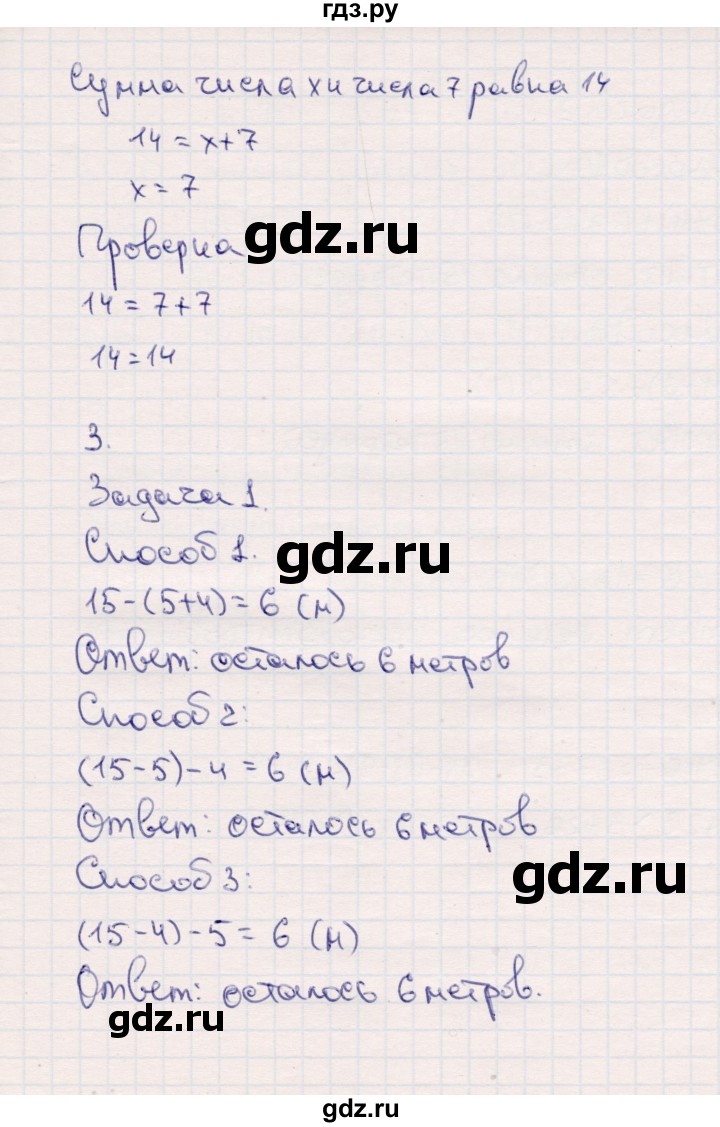 гдз.ру
Сумма числа x и числа 7 равна 14
14 = x+7
x = 7
Проверка
gdz.ru
14 = 7+7
14=14
3.
Задача 1.
Способ 1.
gdz.ru
15-(5+4)= 6 (м)
Ответ: осталось 6 метров
Способ 2:
(15-5)-4 = 6 (м)
Ответ: осталось 6 метров
Способ 3:
gdz.ru
(15-4)-5= 6 (м)
Ответ: осталось 6 метров.
gdz.ru
gdz.ru